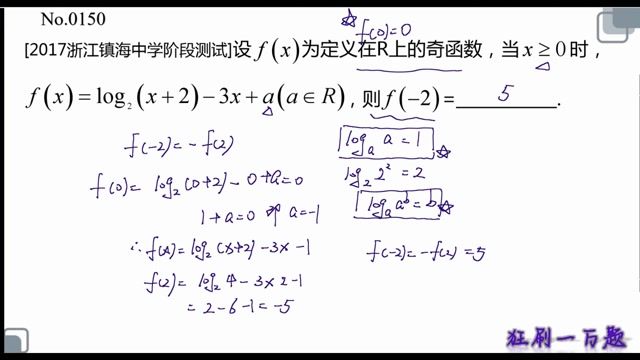 No.0150
☆ f(0)=0
[2017浙江镇海中学阶段测试]设 f(x)为定义在R上的奇函数，当 x≥0 时，
f(x)=log₂(x+2)−3x+a(a∈R)，则 f(−2)=5.
f(-2)=-f(2)
f(0)= log₂(0+2)-0+a=0
1+a=0 a=-1
∴f(x)=log₂(x+2)-3x-1
f(2)= log₂4-3×2-1
=2-6-1=-5
logₐa=1 ☆
log₂2²=2
logₐaᵇ=b ☆
f(-2)=-f(2)=5
狂刷一百题